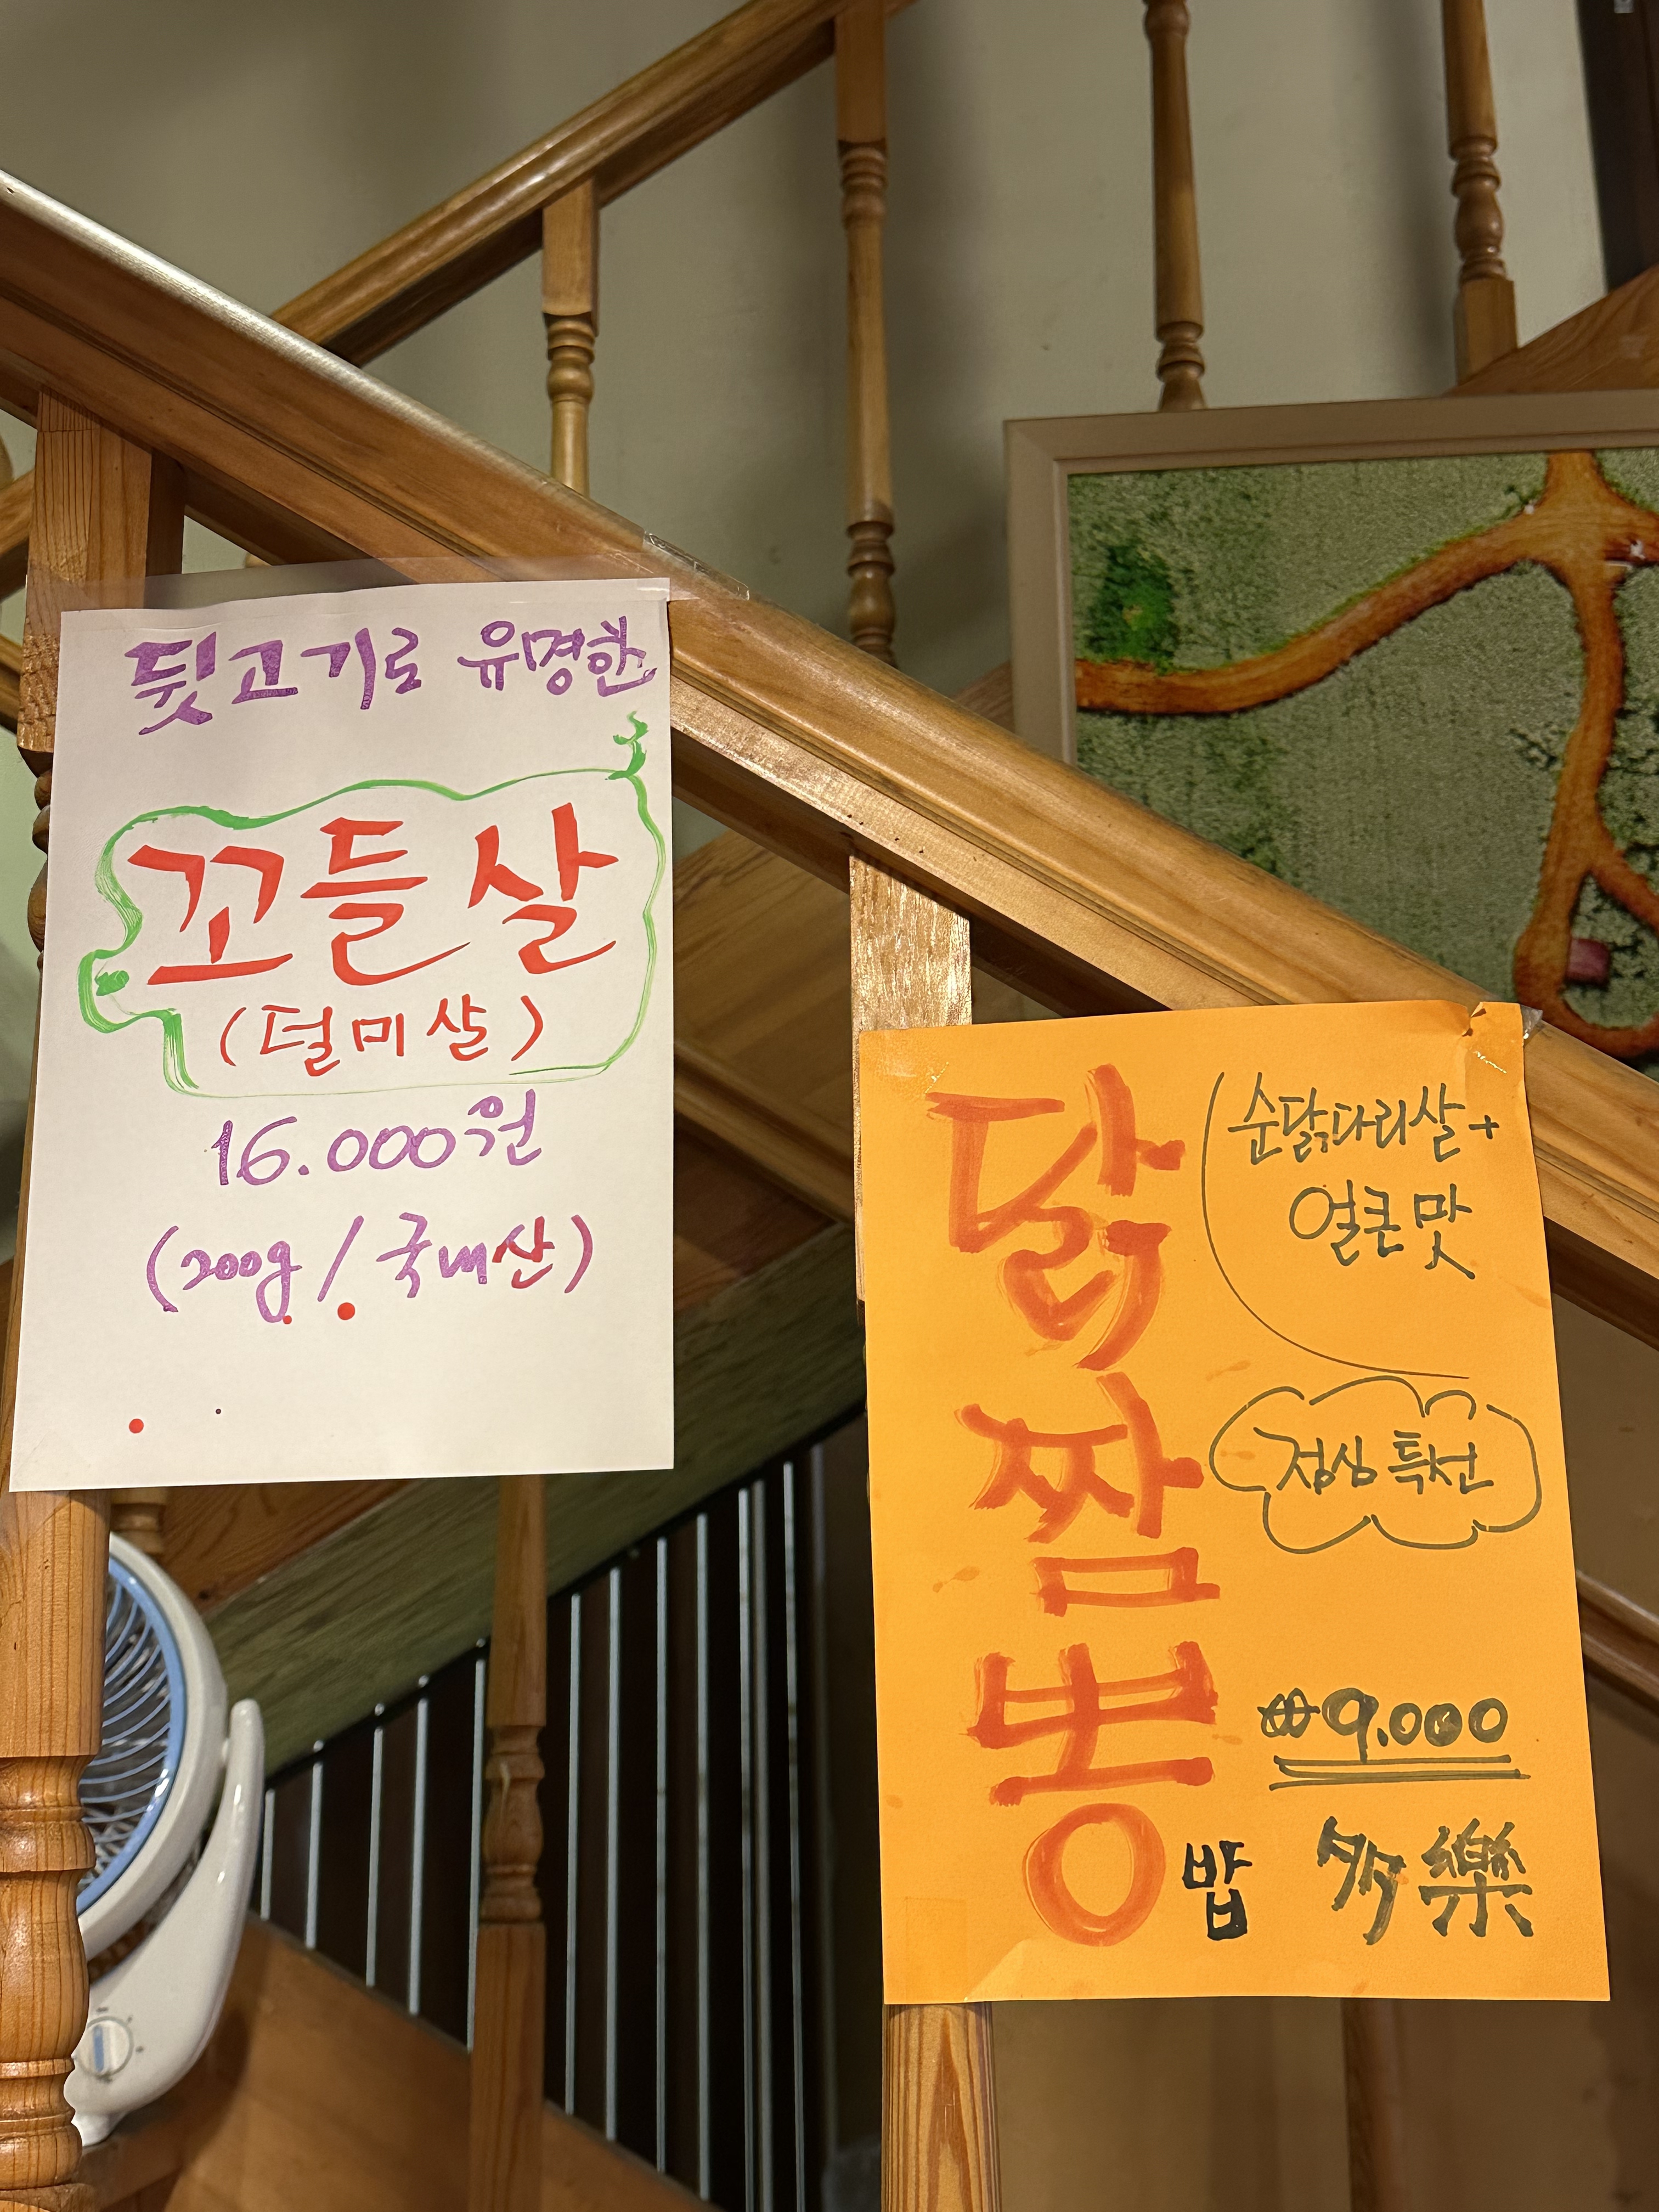 뒷고기로 유명한
꼬들살
(덜미살)
16.000원
(200g / 국내산)
닭짬뽕밥
순닭다리살+
얼큰맛
점심특선
₩9.000
多樂